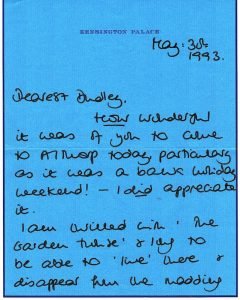 KENSINGTON PALACE
May. 3rd.
1993.
Dearest Dudley.
How wonderful
it was of you to come
to Althorp today, particularly
as it was a bank holiday
weekend! - I did appreciate
it.
I am thrilled with 'The
Garden House' & long to
be able to 'live' there &
disappear from the madding